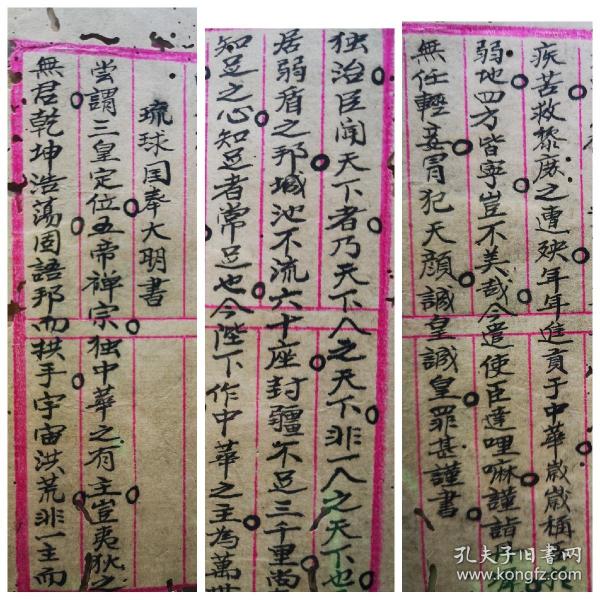 琉球国奉大明書
嘗謂三皇定位五帝禅宗独中華之有主豈夷狄之
無君乾坤浩蕩固語邦而拱手宇宙洪荒非一主而
独治臣闻天下者乃天下人之天下非一人之天下也
居弱眉之邦城池不流六十座封疆不足三千里尚
知足之心知足者常足也今陛下作中華之主為萬世
疾苦救黎庶之遭殃年年進貢于中華歲歲稱
弱地四方皆寧豈不美哉今遣使臣達哩嘛謹詣
無任輕妄冒犯天顔誠皇誠皇罪甚謹書
孔夫子旧书网
www.kongfz.com